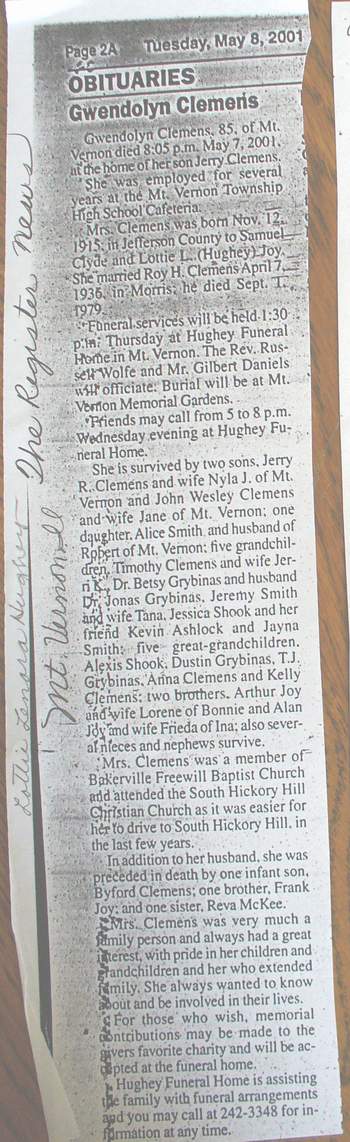 Page 2A Tuesday, May 8, 2001
OBITUARIES
Gwendolyn Clemens
Gwendolyn Clemens, 85, of Mt.
Vernon died 8:05 p.m. May 7, 2001,
at the home of her son Jerry Clemens.
She was employed for several
years at the Mt. Vernon Township
High School Cafeteria.
Mrs. Clemens was born Nov. 12,
1915, in Jefferson County to Samuel
Clyde and Lottie L. (Hughey) Joy.
She married Roy H. Clemens April 7,
1936, in Morris; he died Sept. 1,
1979.
Funeral services will be held 1:30
p.m. Thursday at Hughey Funeral
Home in Mt. Vernon. The Rev. Rus-
sell Wolfe and Mr. Gilbert Daniels
will officiate. Burial will be at Mt.
Vernon Memorial Gardens.
Friends may call from 5 to 8 p.m.
Wednesday evening at Hughey Fu-
neral Home.
She is survived by two sons, Jerry
R. Clemens and wife Nyla J. of Mt.
Vernon and John Wesley Clemens
and wife Jane of Mt. Vernon; one
daughter, Alice Smith and husband of
Robert of Mt. Vernon; five grandchil-
dren, Timothy Clemens and wife Jer-
ri K., Dr. Betsy Grybinas and husband
Dr. Jonas Grybinas, Jeremy Smith
and wife Tana, Jessica Shook and her
friend Kevin Ashlock and Jayna
Smith; five great-grandchildren,
Alexis Shook, Dustin Grybinas, T.J.
Grybinas, Anna Clemens and Kelly
Clemens; two brothers, Arthur Joy
and wife Lorene of Bonnie and Alan
Joy and wife Frieda of Ina; also sever-
al nieces and nephews survive.
Mrs. Clemens was a member of
Bakerville Freewill Baptist Church
and attended the South Hickory Hill
Christian Church as it was easier for
her to drive to South Hickory Hill, in
the last few years.
In addition to her husband, she was
preceded in death by one infant son,
Byford Clemens; one brother, Frank
Joy; and one sister, Reva McKee.
Mrs. Clemens was very much a
family person and always had a great
interest, with pride in her children and
grandchildren and her who extended
family. She always wanted to know
about and be involved in their lives.
For those who wish, memorial
contributions may be made to the
givers favorite charity and will be ac-
cepted at the funeral home.
Hughey Funeral Home is assisting
the family with funeral arrangements
and you may call at 242-3348 for in-
formation at any time.
Lottie Lenora Hughey - The Register News
Mt. Vernon Ill